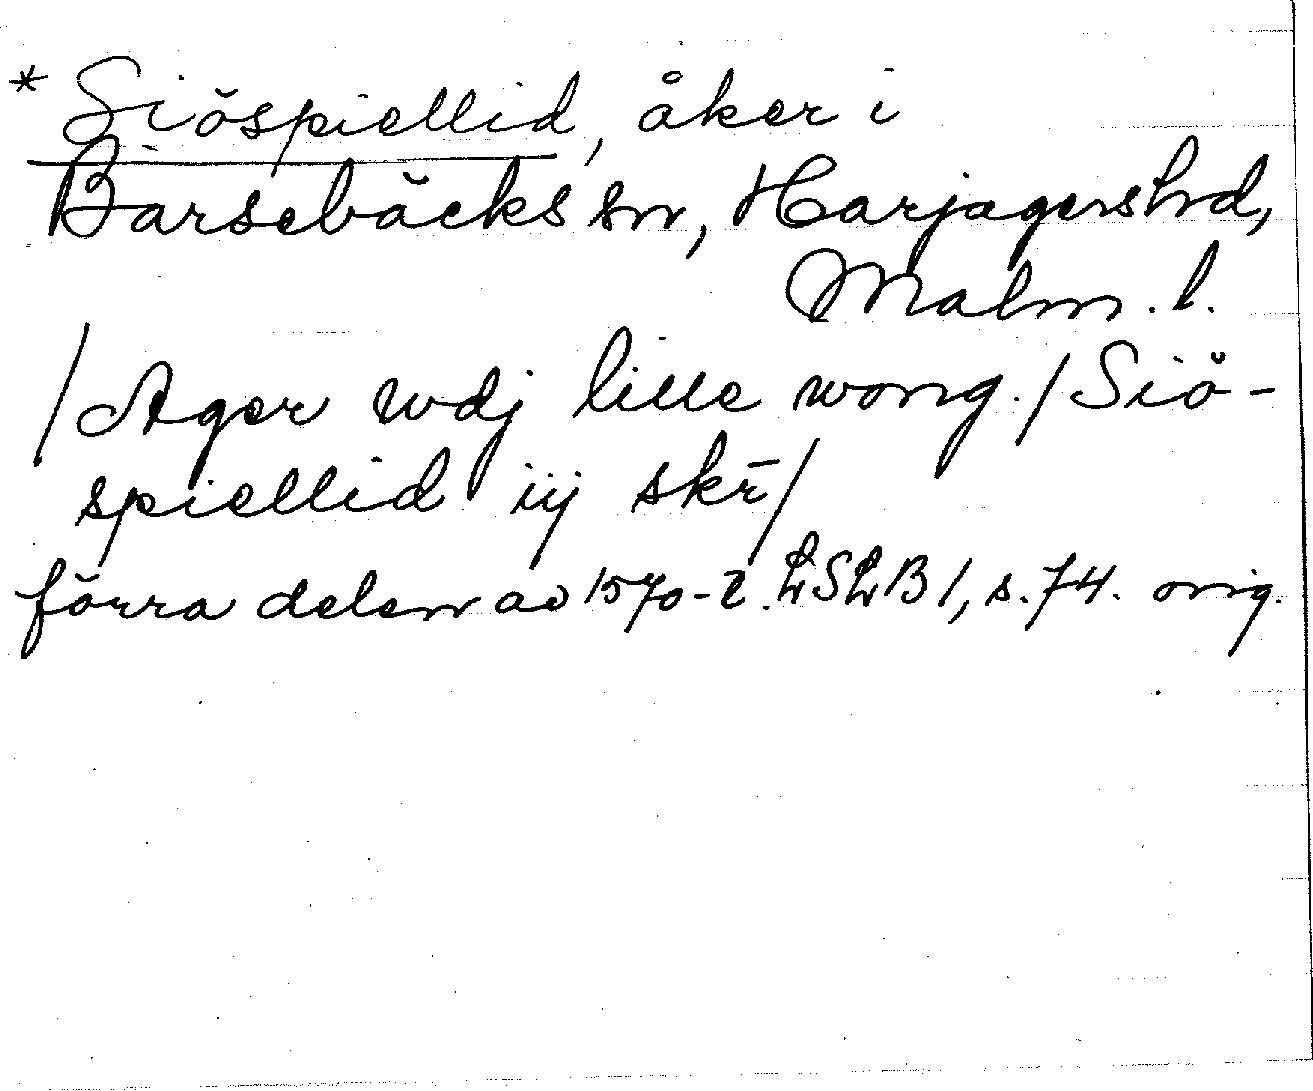 * Siöspiellid, åker i
Barsebäcks sn, Harjagers hd,
Malm. l.
/Ager wdj lille wong./ Siö-
spiellid iij skr̄/
förra delen av 1570-t. LSLB I, s. 74. orig.